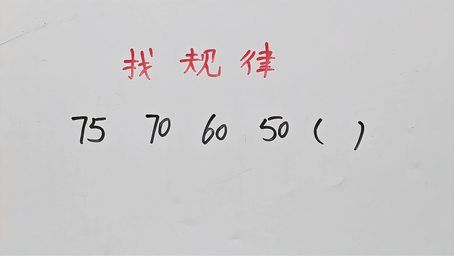 找规律
75 70 60 50 ( )